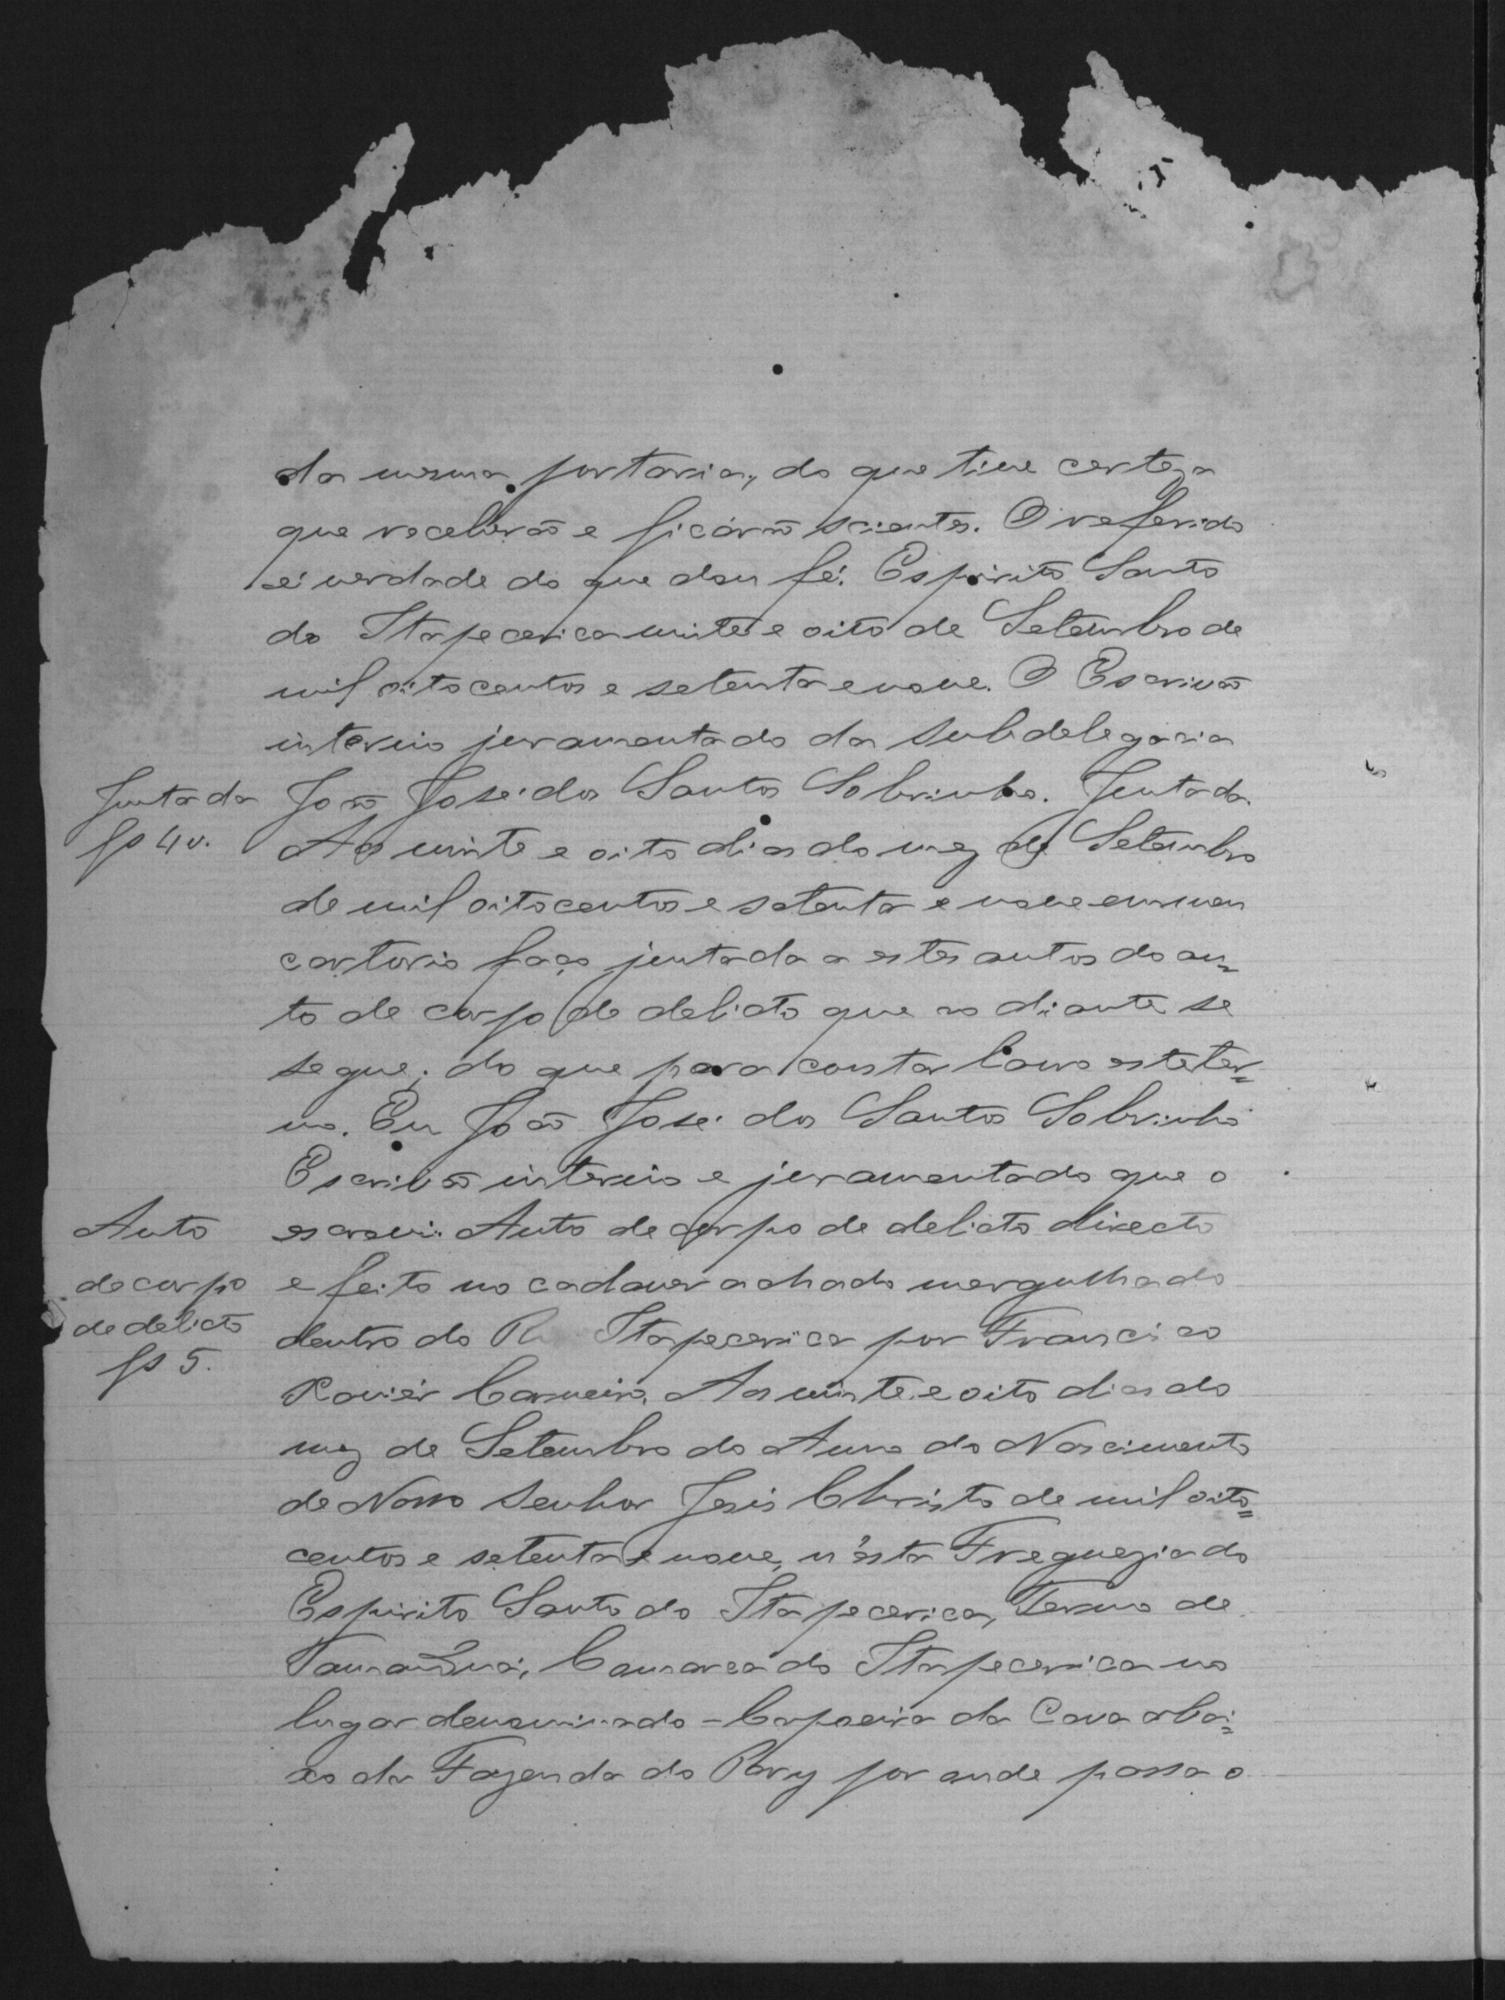 da mesma portaria, do que tive certeza
que receberão e ficárão scientes. O referido
é verdade do que dou fé. Espirito Santo
do Itapecerica vinte e oito de Setembro de
mil oitocentos e setenta e nove. O Escrivão
interino juramentado da Subdelegacia
Juntada João José dos Santos Sobrinho. Juntada
fs 4v. Aos vinte e oito dias do mez de Setembro
de mil oitocentos e setenta e nove em meu
cartorio faço juntada a estes autos do au=
to de corpo de delicto que ao diante se
segue; do que para constar lavro este ter=
mo. Eu João José dos Santos Sobrinho
Escrivão interino e juramentado que o
Auto escrevi. Auto de corpo de delicto directo
de corpo e feito no cadaver achado mergulhado
de delicto dentro do Rio Itapecerica por Francisco
fs 5. Xavier Carneiro. Aos vinte e oito dias do
mez de Setembro do Anno do Nascimento
de Nosso Senhor Jesus Christo de mil oito=
centos e setenta e nove, n'esta Freguezia do
Espirito Santo do Itapecerica, Termo de
Tamanduá, Comarca do Itapecerica no
lugar denominado - Capoeira da Cava abai=
xo da Fazenda do Pary por onde passa o